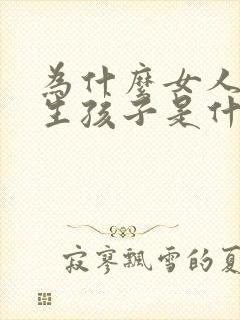 為什麼女人
生孩子是什
寂寥飄雪的夏